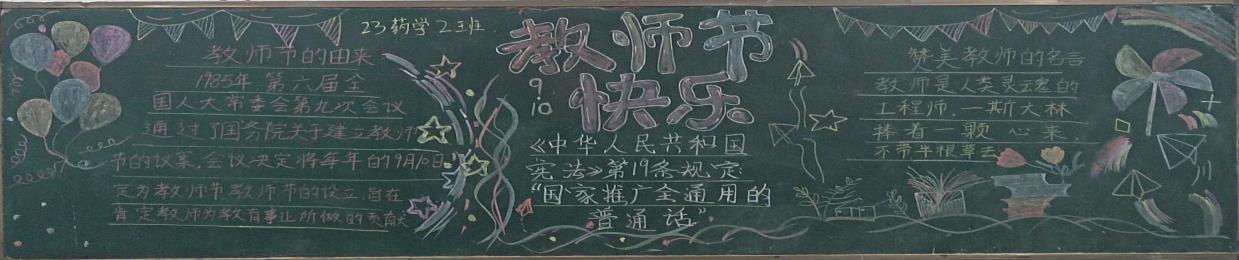 23药学2班
教师节的由来
1985年第六届全
国人大常委会第九次会议
通过了国务院关于建立教师
节的议案,会议决定将每年的9月10日
定为教师节教师节的设立,旨在
肯定教师为教育事业所做的贡献
教师节
快乐
9
10
《中华人民共和国
宪法》第19条规定:
“国家推广全通用的
普通话”
赞美教师的名言
教师是人类灵魂的
工程师.一斯大林
捧着一颗心来,
不带半根草去